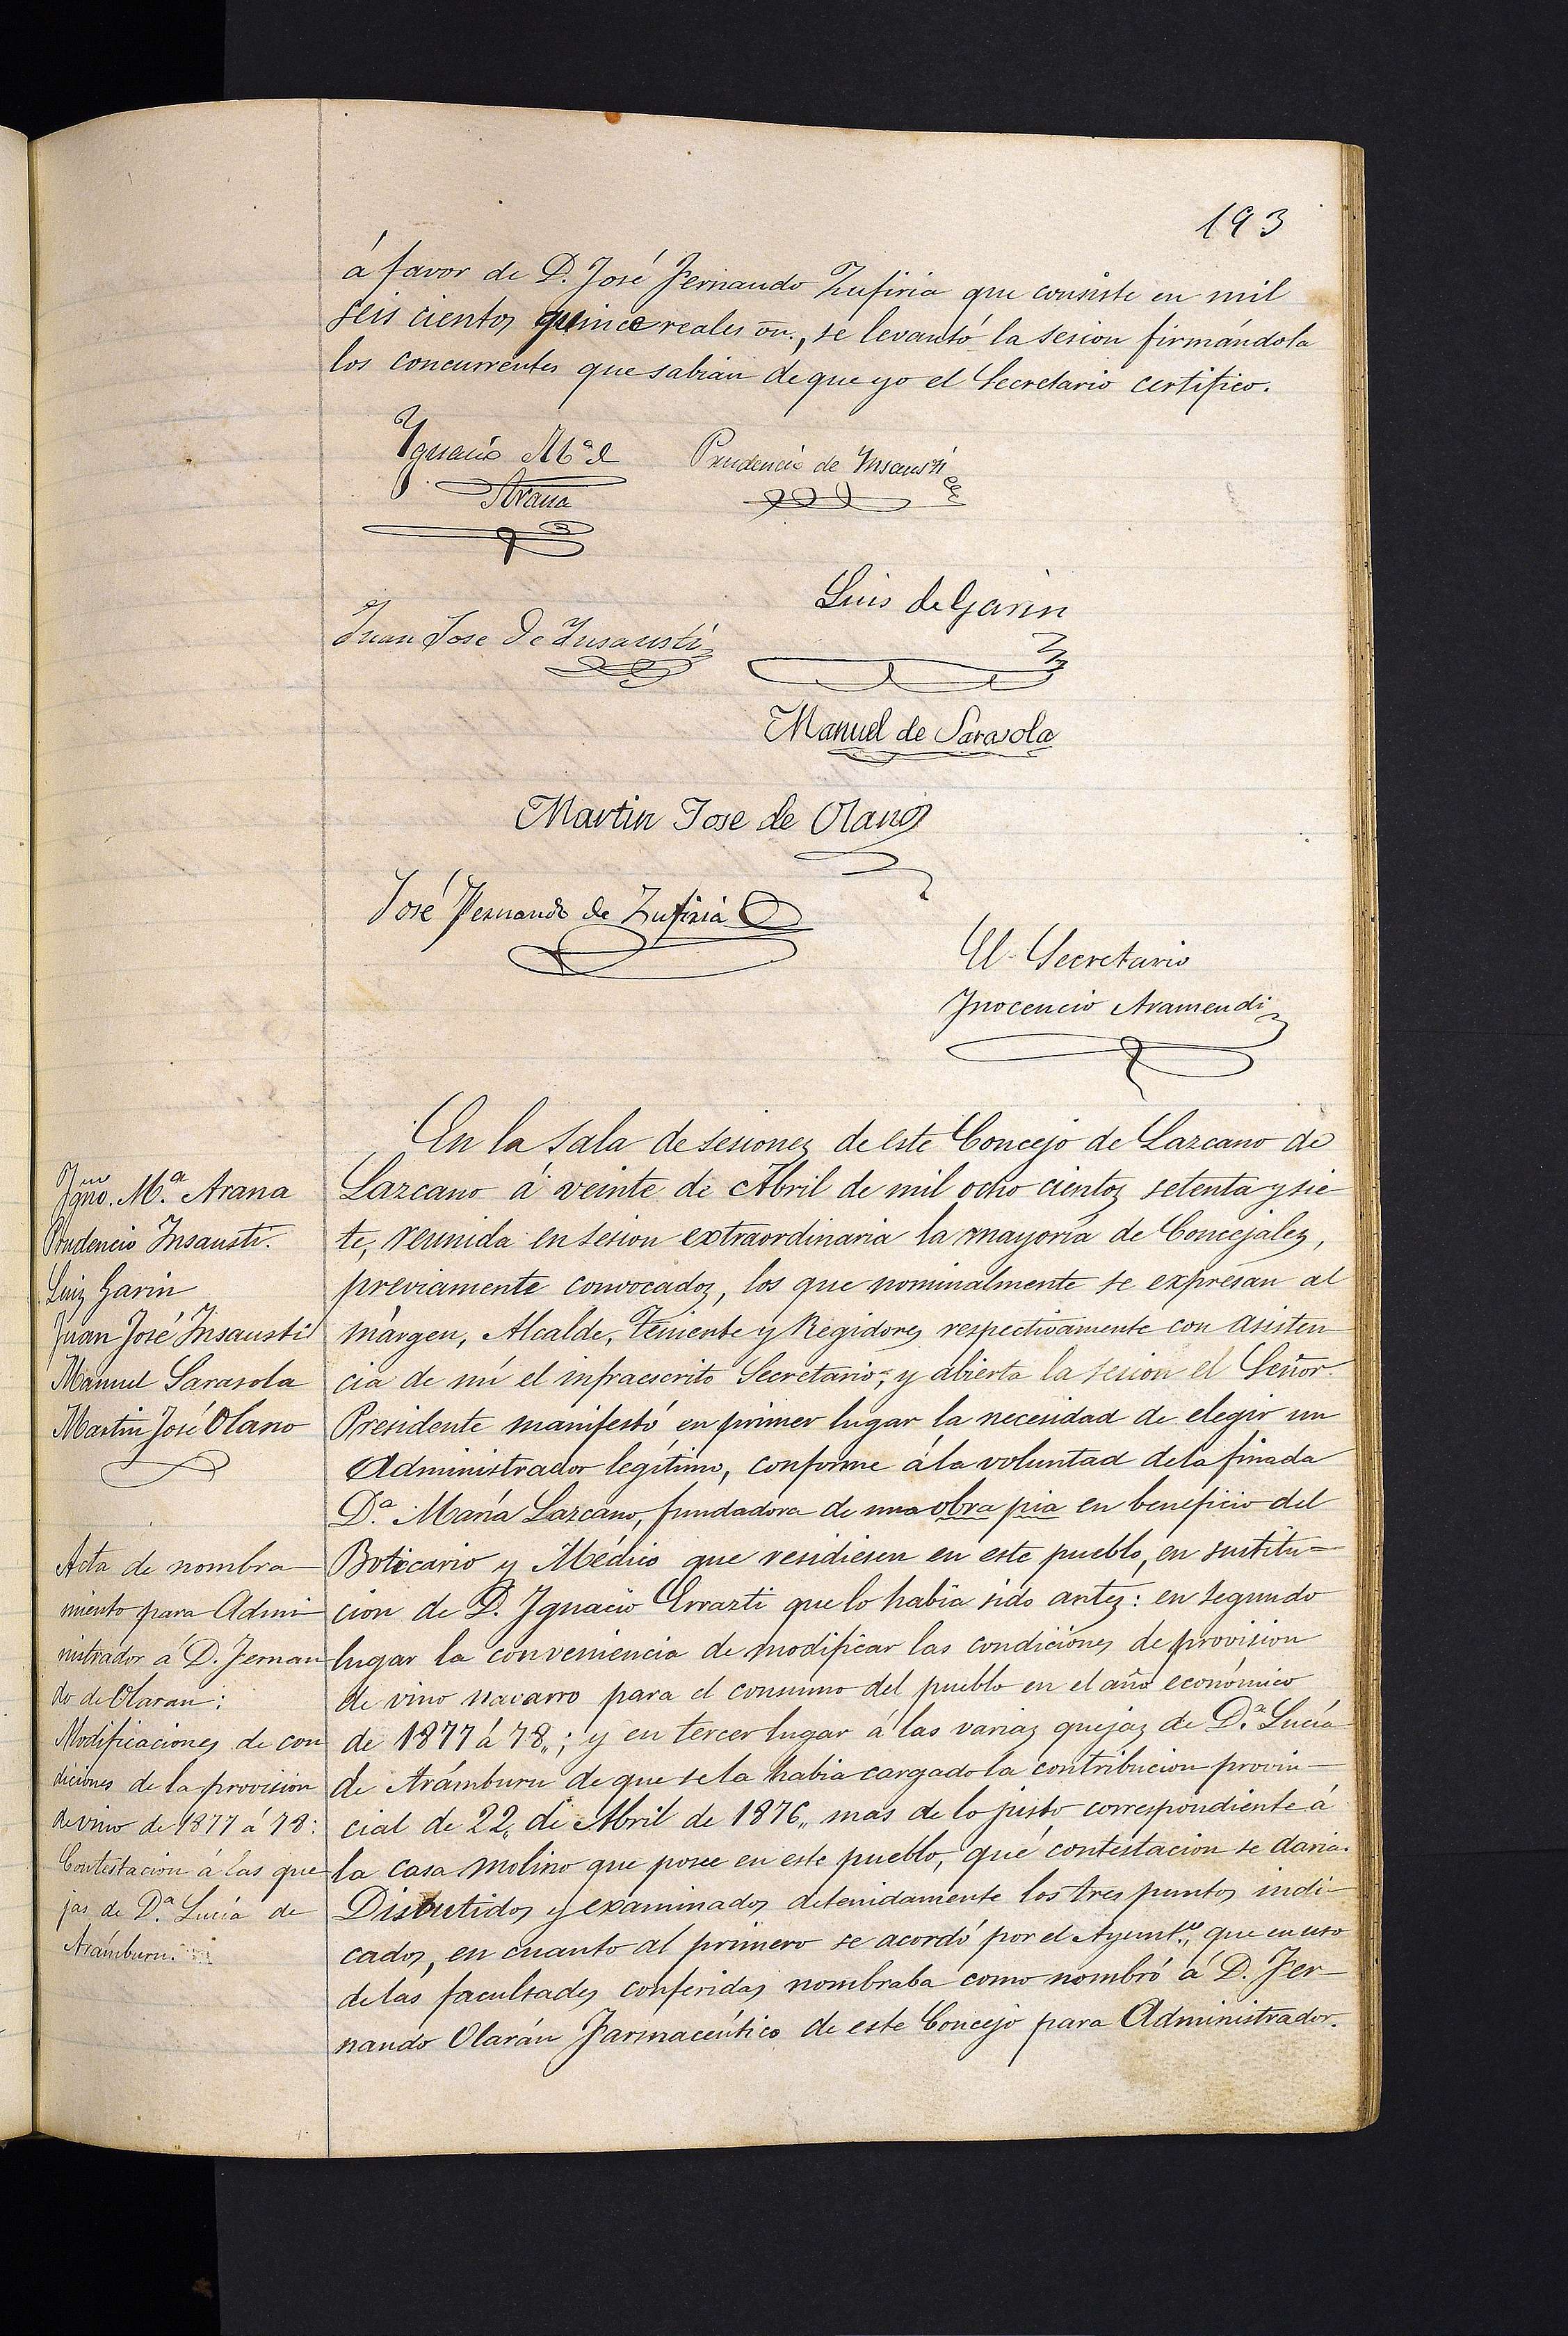 193
á favor de D. José Fernando Zufiria que consiste en mil
seis cientos quince reales vn., se levantó la sesion firmándola
los concurrentes que sabian de que yo el Secretario certifico.
Ygnacio Mª de
Arana
Prudencio de Insausti
Luis de Garin
Juan Jose de Insausti
Manuel de Sarasola
Martin Jose de Olano
José Fernando de Zufiria
El Secretario
Inocencio Aramendi
Igno. M.ª Arana
Prudencio Insausti.
Luiz Garin
Juan José Insausti
Manuel Sarasola
Martin José Olano
Acta de nombra
miento para Admi
nistrador á D. Fernan
do de Olaran:
Modificaciones de con
diciones de la provision
de vino de 1877 á 78:
Contestacion á las que
jas de D.ª Lucía de
Arámburu.
En la sala de sesiones de este Concejo de Lazcano de
Lazcano á veinte de Abril de mil ocho cientos setenta y sie
te, reunida en sesion extraordinaria la mayoría de Concejales,
previamente convocados, los que nominalmente se expresan al
márgen, Alcalde, Teniente y Regidores respectivamente con asisten
cia de mí el infraescrito Secretario; y abierta la sesion el Señor
Presidente manifestó en primer lugar la necesidad de elegir un
Administrador legítimo, conforme á la voluntad de la finada
D.ª María Lazcano, fundadora de una obra pia en beneficio del
Boticario y Médico que residiesen en este pueblo, en sustitu-
cion de D. Ignacio Errazti que lo habia sido antes: en segundo
lugar la conveniencia de modificar las condiciones de provision
de vino navarro para el consumo del pueblo en el año económico
de 1877 á 78,,; y en tercer lugar á las varias quejas de D.ª Lucía
de Arámburu de que se la habia cargado la contribucion provin-
cial de 22,, de Abril de 1876,, mas de lo justo, correspondiente á
la casa molino que posee en este pueblo, qué contestacion se daria.
Discutidos y examinados detenidamente los tres puntos indi-
cados, en cuanto al primero se acordó por el Ayunt.º, que en uso
de las facultades conferidas nombraba como nombró á D. Fer-
nando Olarán Farmacéutico de este Concejo para Administrador.